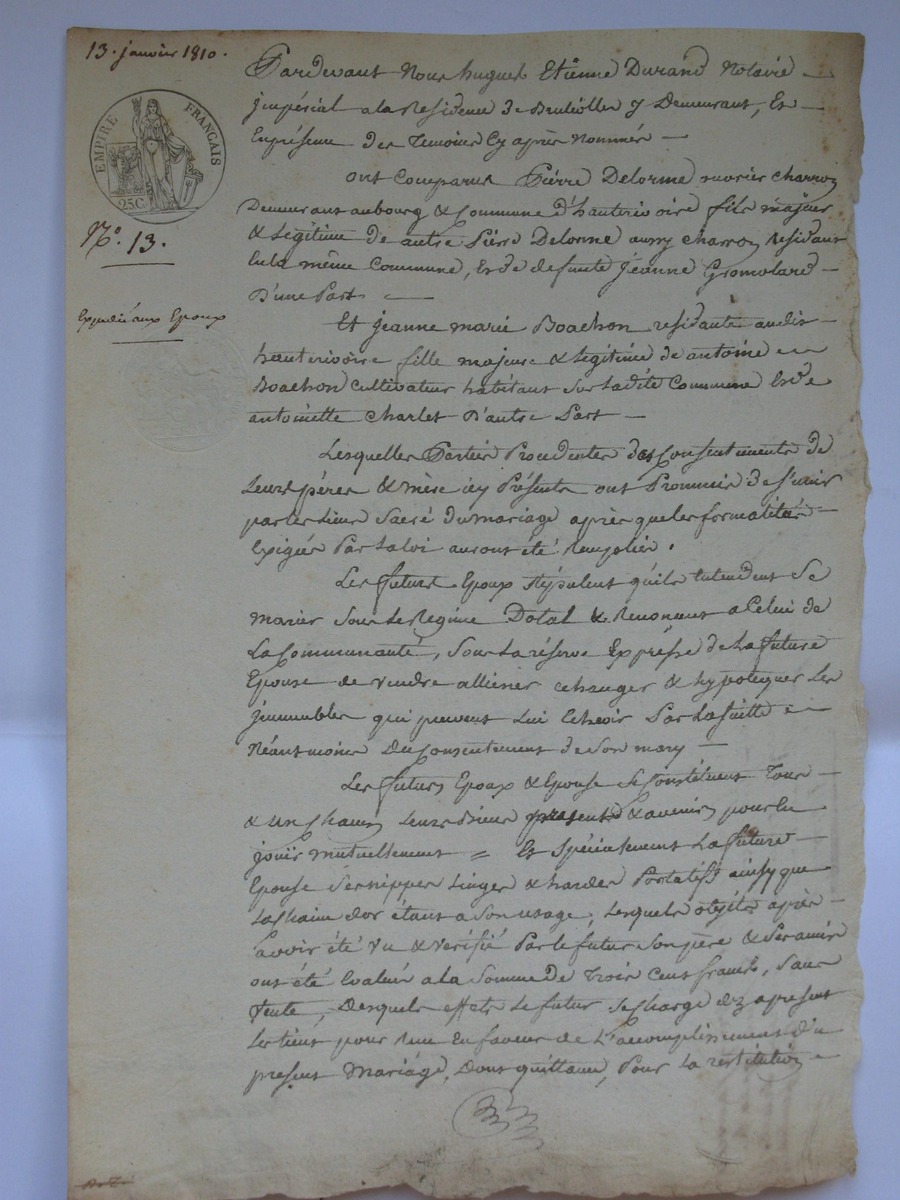 13. janvier 1810.
EMPIRE FRANÇAIS
25C.
N.º 13.
Expedié aux Epoux
Pardevant Nous hugues Etienne Durand Notaire
jmperial a la Residence de y Demeurant, Et
En présence des Temoins Cy après Nommés
ont Comparus Pierre Delorme ouvrier charron
Demeurant au bourg & Commune d'hauterivoire fils majeur
& Legitime de autre Pierre Delorme aussy Charron Residant
En la même Commune, Et de defunte jeanne Gromolard
D'une Part
Et jeanne marie Boachon residante audit
hauterivoire fille majeure & Legitime de antoine
Boachon Cultivateur habitant Sur La dite Commune Et de
antoinette Charlet D'autre Part
Lesquelles Parties Procedentes des Consentements de
Leurs pères & mère icy Présents ont Promis de S'unir
par les Liens Sacré du mariage après que les formalités
Exigées Par La Loi auront été Remplies.
Les futurs Epoux Stipulent qu'ils Entendent Se
marier Sous Le Regime Dotal & Renoncent a Celui de
La Communauté, Sous La réserve Expresse de La future
Epouse de vendre alliener echanger & hypotequer Les
jmmeubles qui peuvent Lui Echeoir Par La Suitte
Néantmoins Du Consentement de Son mary
Les futurs Epoux & Epouse Se Constituent Tous
& un Chacun Leurs Biens présents & avenir pour En
jouir mutuellement = Et Spécialement La future
Epouse Ses nippes Linges & hardes Portatifs ainsy que
La Chaine d'or étant a Son usage, Lesquels objets après
avoir été vu & vérifié Par le futur Son père & Ses amis
ont été Evalués a la Somme de Trois Cent francs, Sans
vente, Desquels effets Le futur Se Charge dez apresent
Les tient pour reçu En faveur de L'accomplissement du
présent Mariage, Dont quittance, Pour La restitution